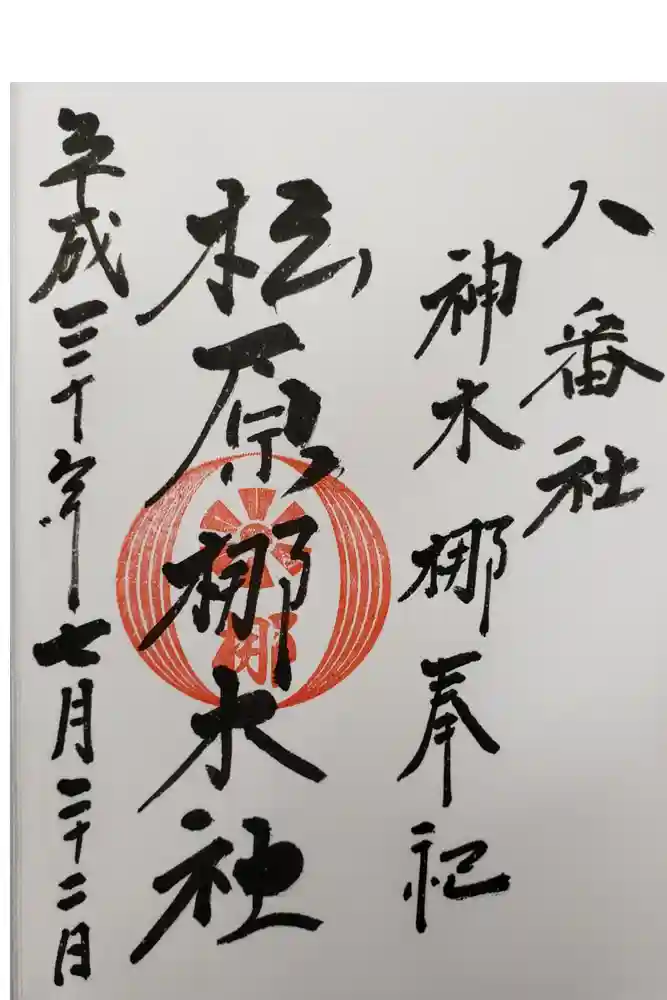 八番社
神木梛奉祀
松原梛木社
梛
平成三十年七月二十二日